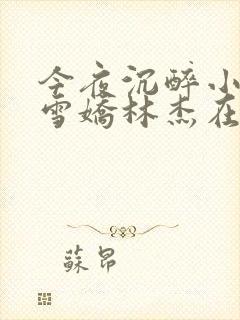 今夜沉醉小
雪嬌林杰在
蘇昂